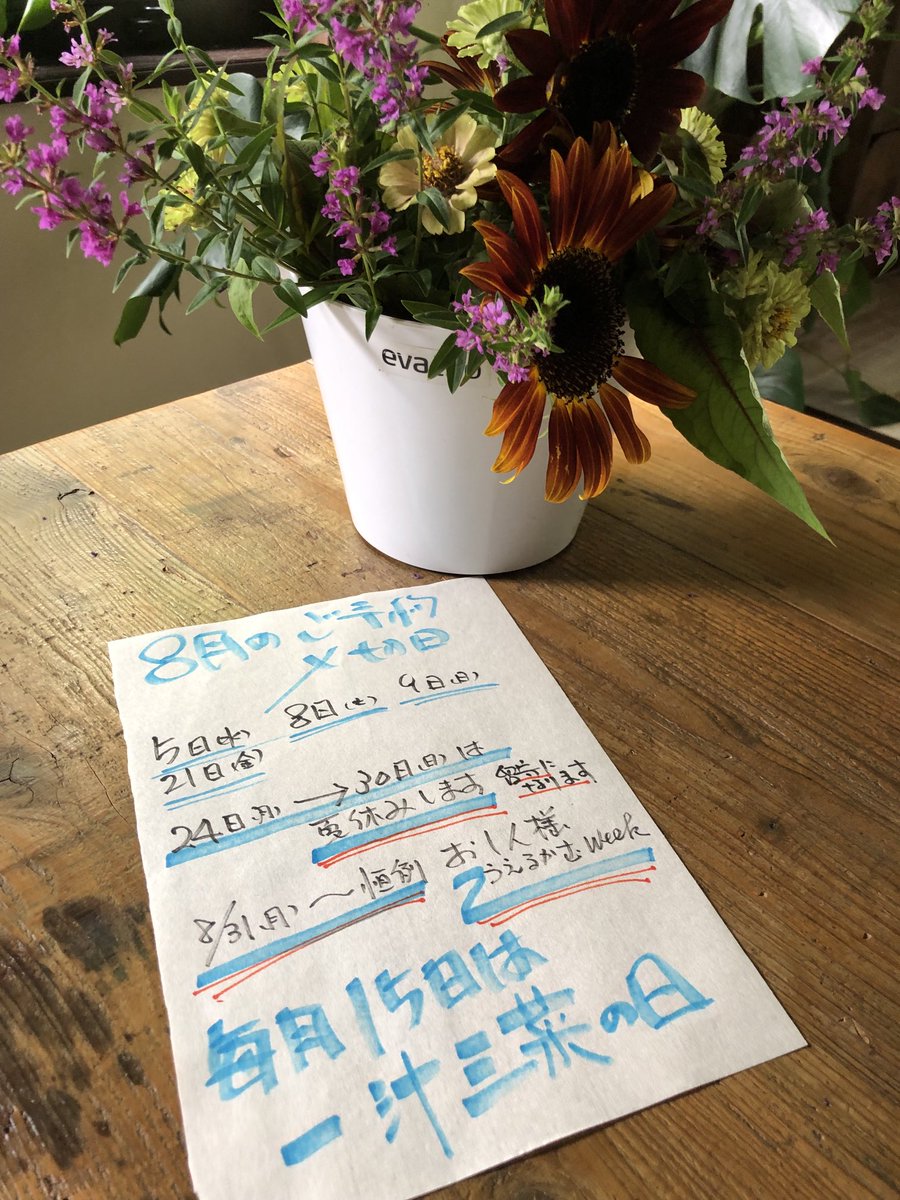 eva
8月のご予約
〆切日
5日(水) 8日(土) 9日(日)
21日(金)
24日(月)→30日(日)は
夏休みします 留守に
なります
8/31(月)〜恒例 お1人様
うえるかむweek
毎月15日は
一汁三菜の日